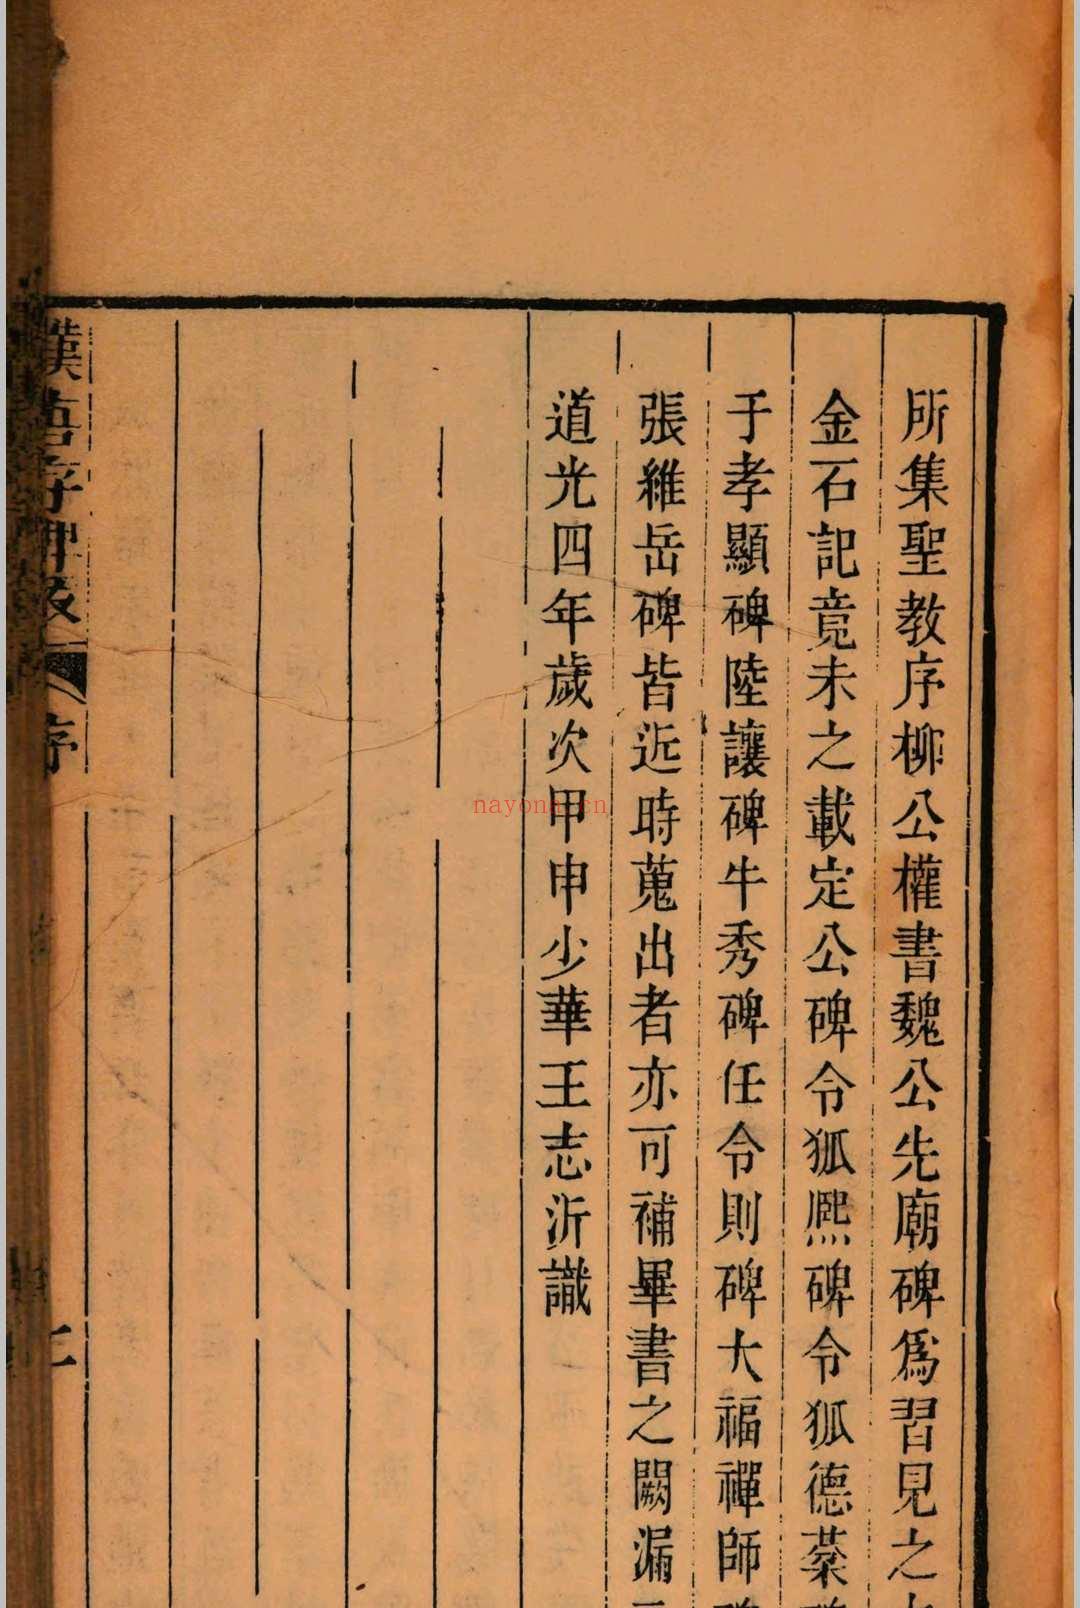 所集聖教序柳公權書魏公先廟碑爲習見之
金石記竟未之載定公碑令狐熙碑令狐德棻
于孝顯碑陸讓碑牛秀碑任令則碑大福禪師
張維岳碑皆近時蒐出者亦可補畢書之闕漏
道光四年歲次甲申少華王志沂識
漢唐存碑跋
序
nayona.cn